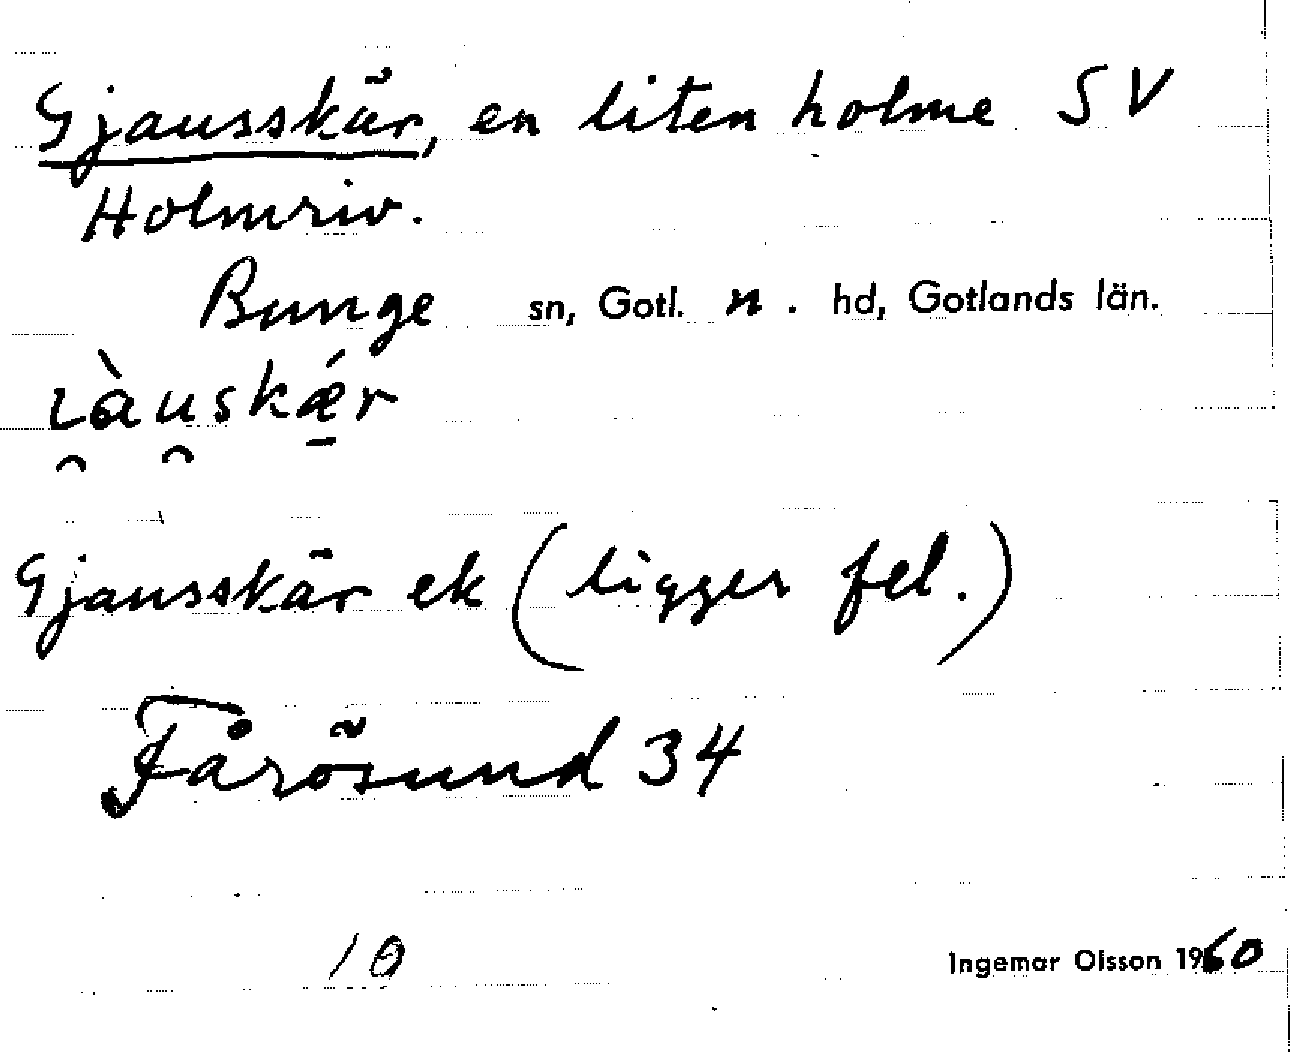 Gjausskär, en liten holme SV
Holmriv.
Bunge sn, Gotl. n. hd, Gotlands län.
ı̯àu̯skǽ̠r
Gjausskär ek (ligger fel.)
Fårösund 34
10
Ingemar Olsson 1960